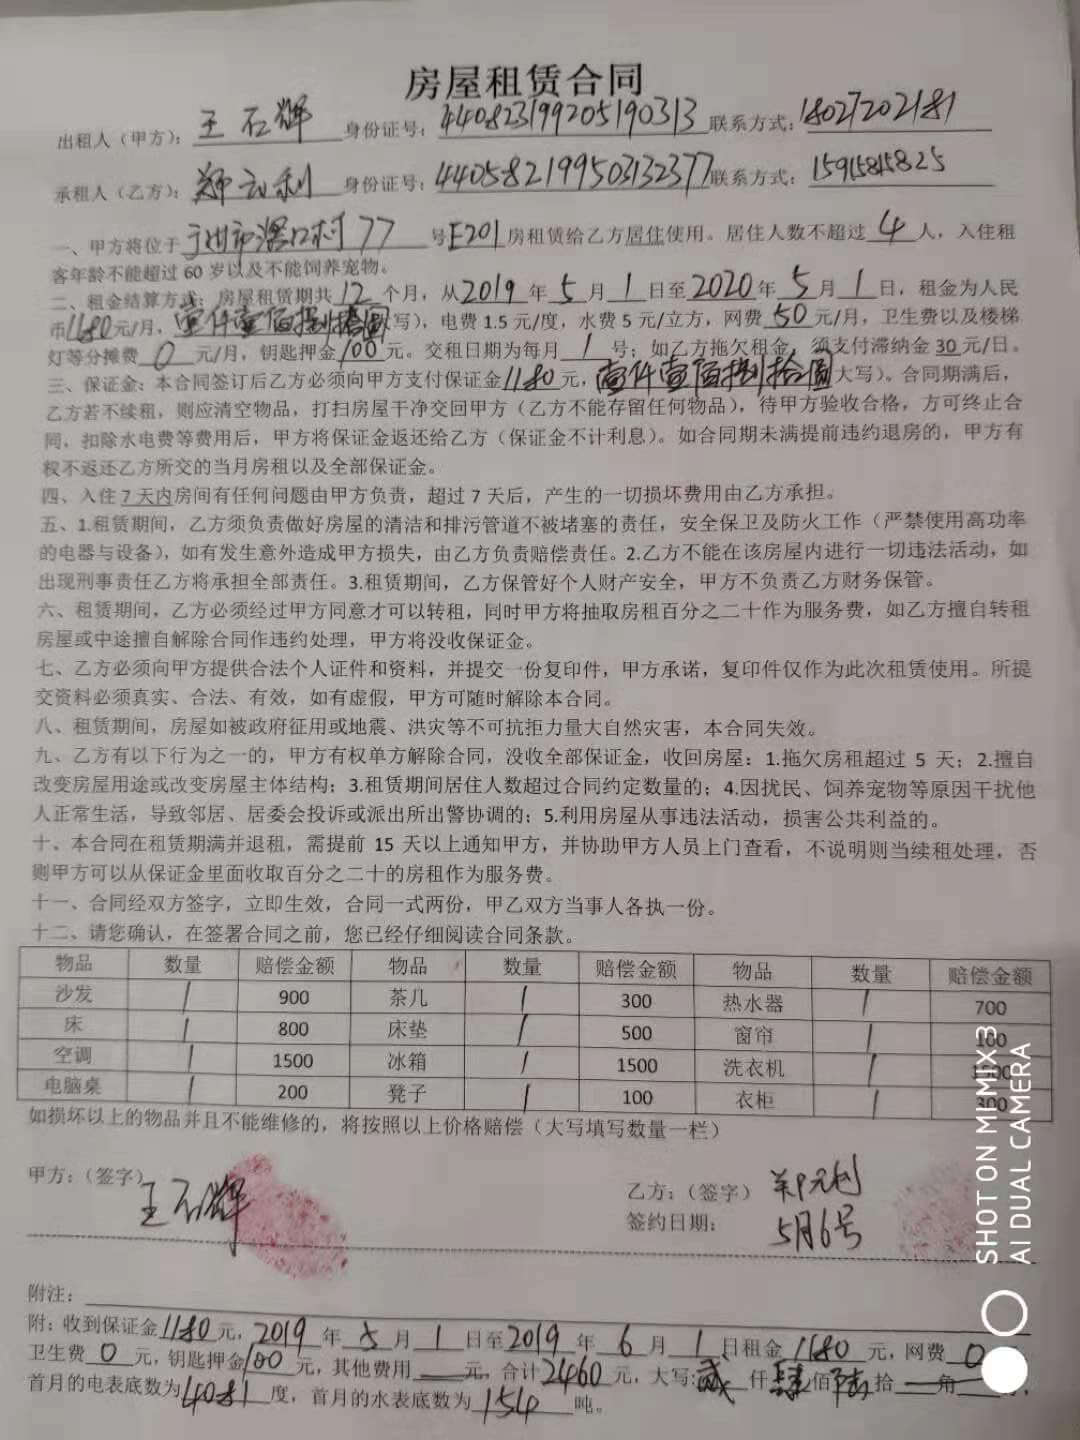 房屋租赁合同
出租人（甲方）：王石辉 身份证号：440823199205190313 联系方式：18027202181
承租人（乙方）：郑元利 身份证号：440582199503132377 联系方式：15915815825
一、甲方将位于 村77 号E201房租赁给乙方居住使用。居住人数不超过 4 人，入住租
客年龄不能超过 60 岁以及不能饲养宠物。
二、租金结算方式：房屋租赁期共 12 个月，从2019 年 5 月 1 日至 2020 年 5 月 1 日，租金为人民
币1180元/月，壹仟壹佰捌拾圆 大写），电费 1.5 元/度，水费 5 元/立方，网费 50 元/月，卫生费以及楼梯
灯等分摊费 0 元/月，钥匙押金 100 元。交租日期为每月 1 号；如乙方拖欠租金，须支付滞纳金 30 元/日。
三、保证金：本合同签订后乙方必须向甲方支付保证金1180 元，壹仟壹佰捌拾圆 大写）。合同期满后，
乙方若不续租，则应清空物品，打扫房屋干净交回甲方（乙方不能存留任何物品），待甲方验收合格，方可终止合
同，扣除水电费等费用后，甲方将保证金返还给乙方（保证金不计利息）。如合同期未满提前违约退房的，甲方有
权不返还乙方所交的当月房租以及全部保证金。
四、入住 7 天内房间有任何问题由甲方负责，超过 7 天后，产生的一切损坏费用由乙方承担。
五、1.租赁期间，乙方须负责做好房屋的清洁和排污管道不被堵塞的责任，安全保卫及防火工作（严禁使用高功率
的电器与设备），如有发生意外造成甲方损失，由乙方负责赔偿责任。2.乙方不能在该房屋内进行一切违法活动，如
出现刑事责任乙方将承担全部责任。3.租赁期间，乙方保管好个人财产安全，甲方不负责乙方财务保管。
六、租赁期间，乙方必须经过甲方同意才可以转租，同时甲方将抽取房租百分之二十作为服务费，如乙方擅自转租
房屋或中途擅自解除合同作违约处理，甲方将没收保证金。
七、乙方必须向甲方提供合法个人证件和资料，并提交一份复印件，甲方承诺，复印件仅作为此次租赁使用。所提
交资料必须真实、合法、有效，如有虚假，甲方可随时解除本合同。
八、租赁期间，房屋如被政府征用或地震、洪灾等不可抗拒力量大自然灾害，本合同失效。
九、乙方有以下行为之一的，甲方有权单方解除合同，没收全部保证金，收回房屋：1.拖欠房租超过 5 天；2.擅自
改变房屋用途或改变房屋主体结构；3.租赁期间居住人数超过合同约定数量的；4.因扰民、饲养宠物等原因干扰他
人正常生活，导致邻居、居委会投诉或派出所出警协调的；5.利用房屋从事违法活动，损害公共利益的。
十、本合同在租赁期满并退租，需提前 15 天以上通知甲方，并协助甲方人员上门查看，不说明则当续租处理，否
则甲方可以从保证金里面收取百分之二十的房租作为服务费。
十一、合同经双方签字，立即生效，合同一式两份，甲乙双方当事人各执一份。
十二、请您确认，在签署合同之前，您已经仔细阅读合同条款。
物品 数量 赔偿金额 物品 数量 赔偿金额 物品 数量 赔偿金额
沙发 1 900 茶几 1 300 热水器 1 700
床 1 800 床垫 1 500 窗帘 1 100
空调 1 1500 冰箱 1 1500 洗衣机 1 1500
电脑桌 1 200 凳子 1 100 衣柜 1 300
如损坏以上的物品并且不能维修的，将按照以上价格赔偿（大写填写数量一栏）
甲方：（签字） 王石辉
乙方：（签字） 郑元利
签约日期： 5月6号
附注：
附：收到保证金1180元，2019 年 5 月 1 日至2019 年 6 月 1 日租金 1180 元，网费 0
卫生费 0 元，钥匙押金100 元，其他费用 元，合计2460 元，大写：贰 仟 肆 佰 陆 拾 角
首月的电表底数为4081 度，首月的水表底数为 154 吨。
SHOT ON MI MIX 3
AI DUAL CAMERA